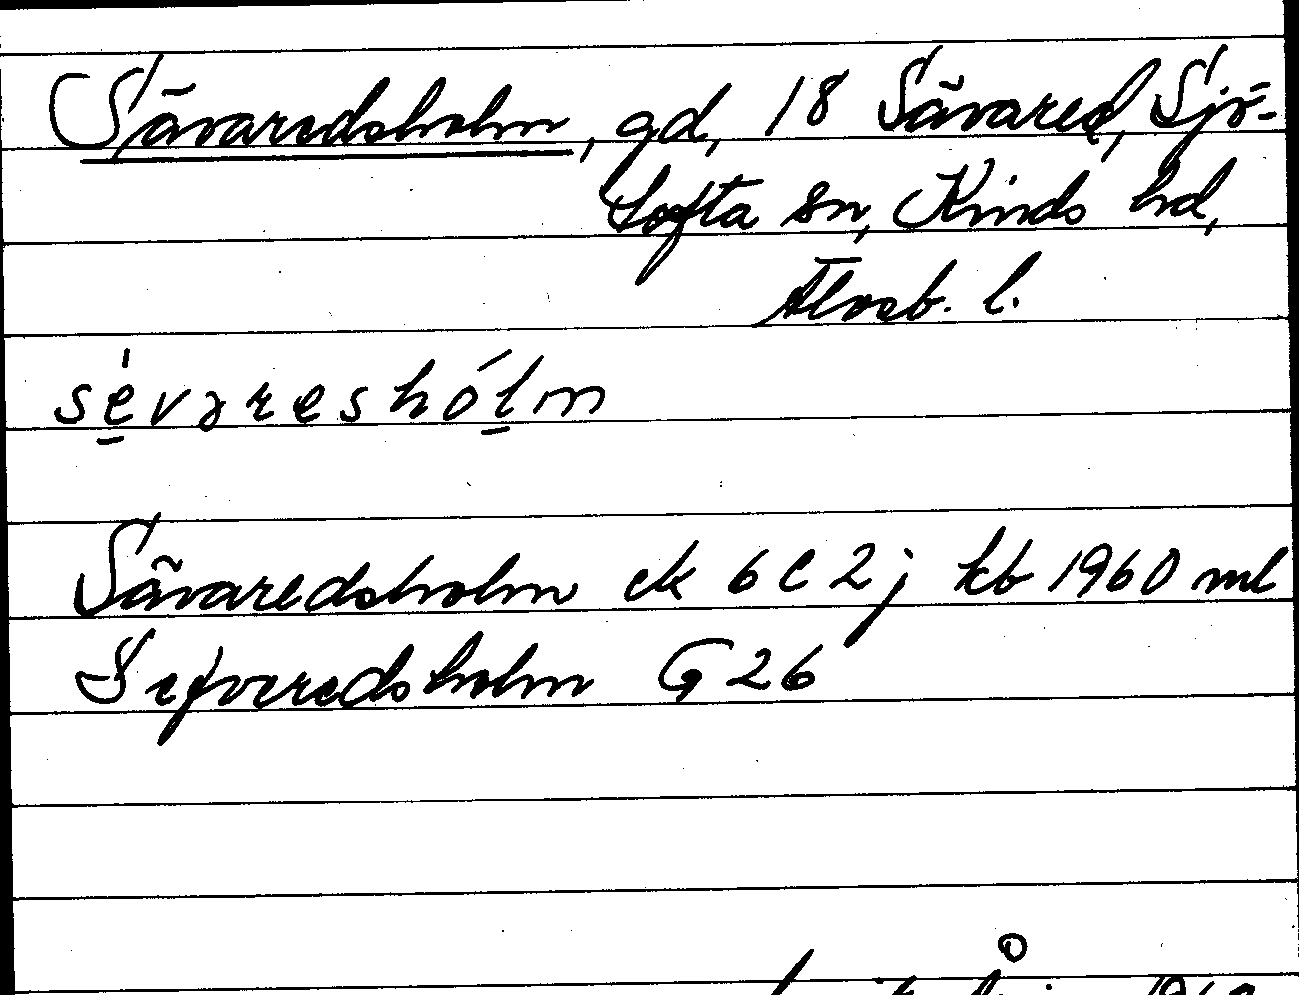 Sävaredsholm, gd, 18 Sävared, Sjö-
tofta sn, Kinds hd,
Älvsb. l.
sèvareshólm
Sävaredsholm ek 6C2j kb 1960 ml
Sefveredsholm G26